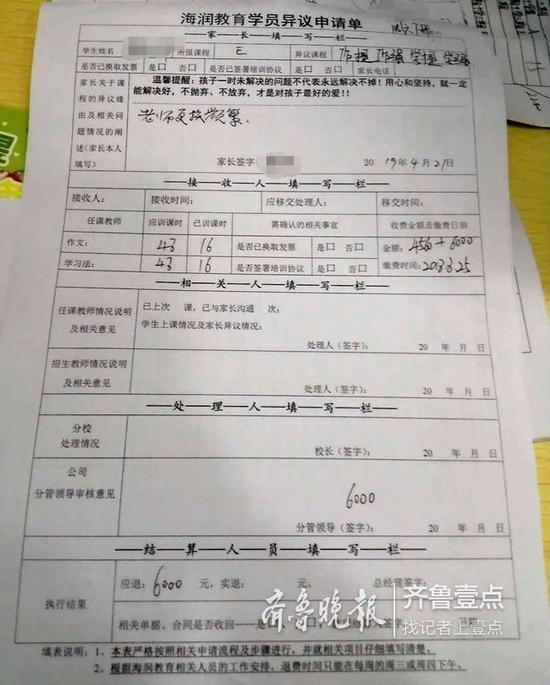 海润教育学员异议申请单
家——长——填——写——栏
学生姓名 所报课程 E 异议课程
是否已换取发票 是口 否口 是否已签署培训协议 是口 否口 家长电话
家长关于课程的异议缘由及相关问题情况的阐述(家长本人填写)
温馨提醒:孩子一时未解决的问题不代表永远解决不掉!用心和坚持,就一定能解决好,不抛弃、不放弃,才是对孩子最好的爱!!
老师更换频繁
家长签字 2019年4月21日
接——收——人——填——写——栏
接收人: 接收时间: 应移交处理人: 移交时间:
任课教师 应训课时 已训课时 需确认的相关事宜 收费金额及缴费日期
作文: 43 16 是否已换取发票 是口 否口 金额: +6000
学习法: 43 16 是否签署培训协议 是口 否口 缴费时间:
相——关——人——填——写——栏
任课教师情况说明及相关意见
已上次 课,已与家长沟通 次;
学生上课情况及家长异议情况:
处理人(签字): 20 年 月 日
招生教师情况说明及相关意见
处理人(签字): 20 年 月 日
处——理——人——填——写——栏
分校处理情况
校长(签字): 20 年 月 日
公司分管领导审核意见
6000
分管领导(签字): 20 年 月 日
结——算——人——员——填——写——栏
执行结果
应退: 6000 元,实退: 元, 总经理签字:
相关单据、合同是否收回——是口 否口
填表说明:1、本表严格按照相关申请流程及步骤进行,并就相关项目仔细填写清楚。
2、根据海润教育相关人员的工作安排,退费时间只能在每周的周三或周四下午。
齐鲁晚报 齐鲁壹点
找记者上壹点